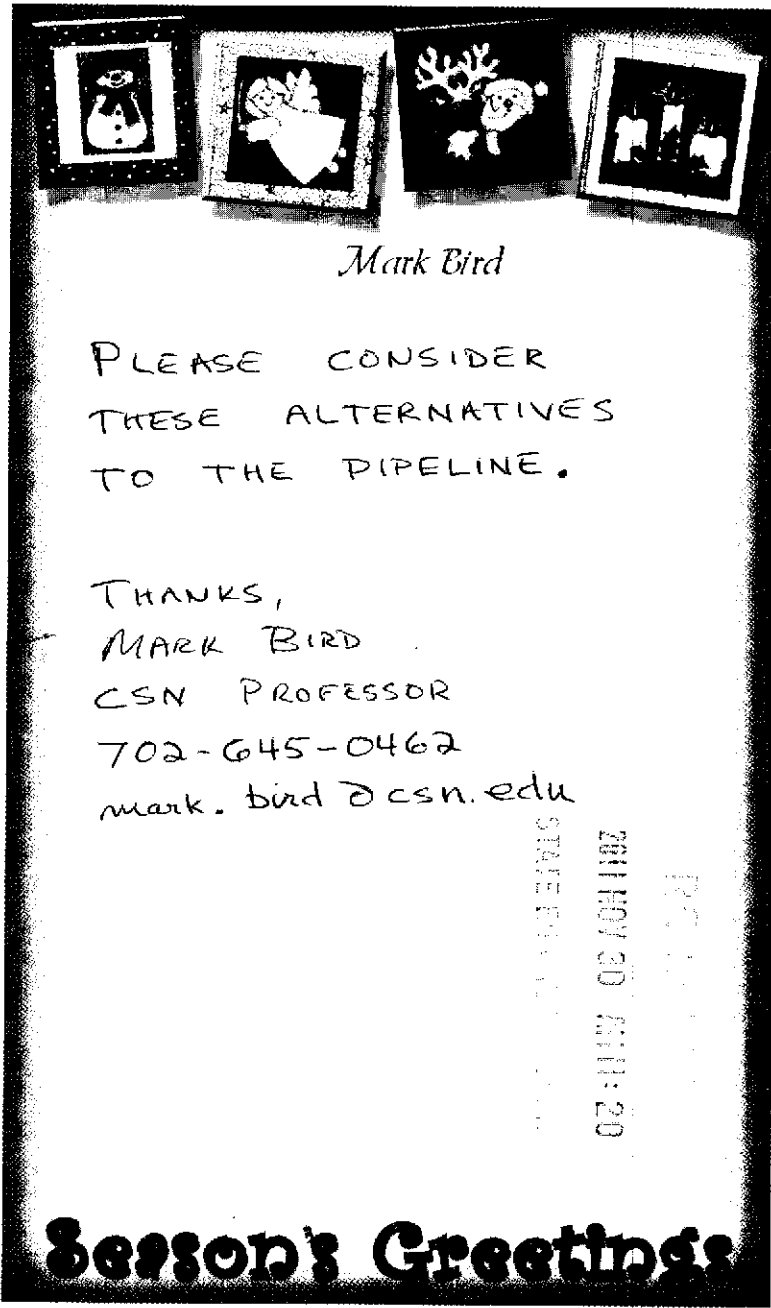 Mark Bird
PLEASE CONSIDER
THESE ALTERNATIVES
TO THE PIPELINE.
THANKS,
MARK BIRD
CSN PROFESSOR
702-645-0462
mark.bird@csn.edu
2011 NOV 30 AM 11:20
STATE
Season's Greetings